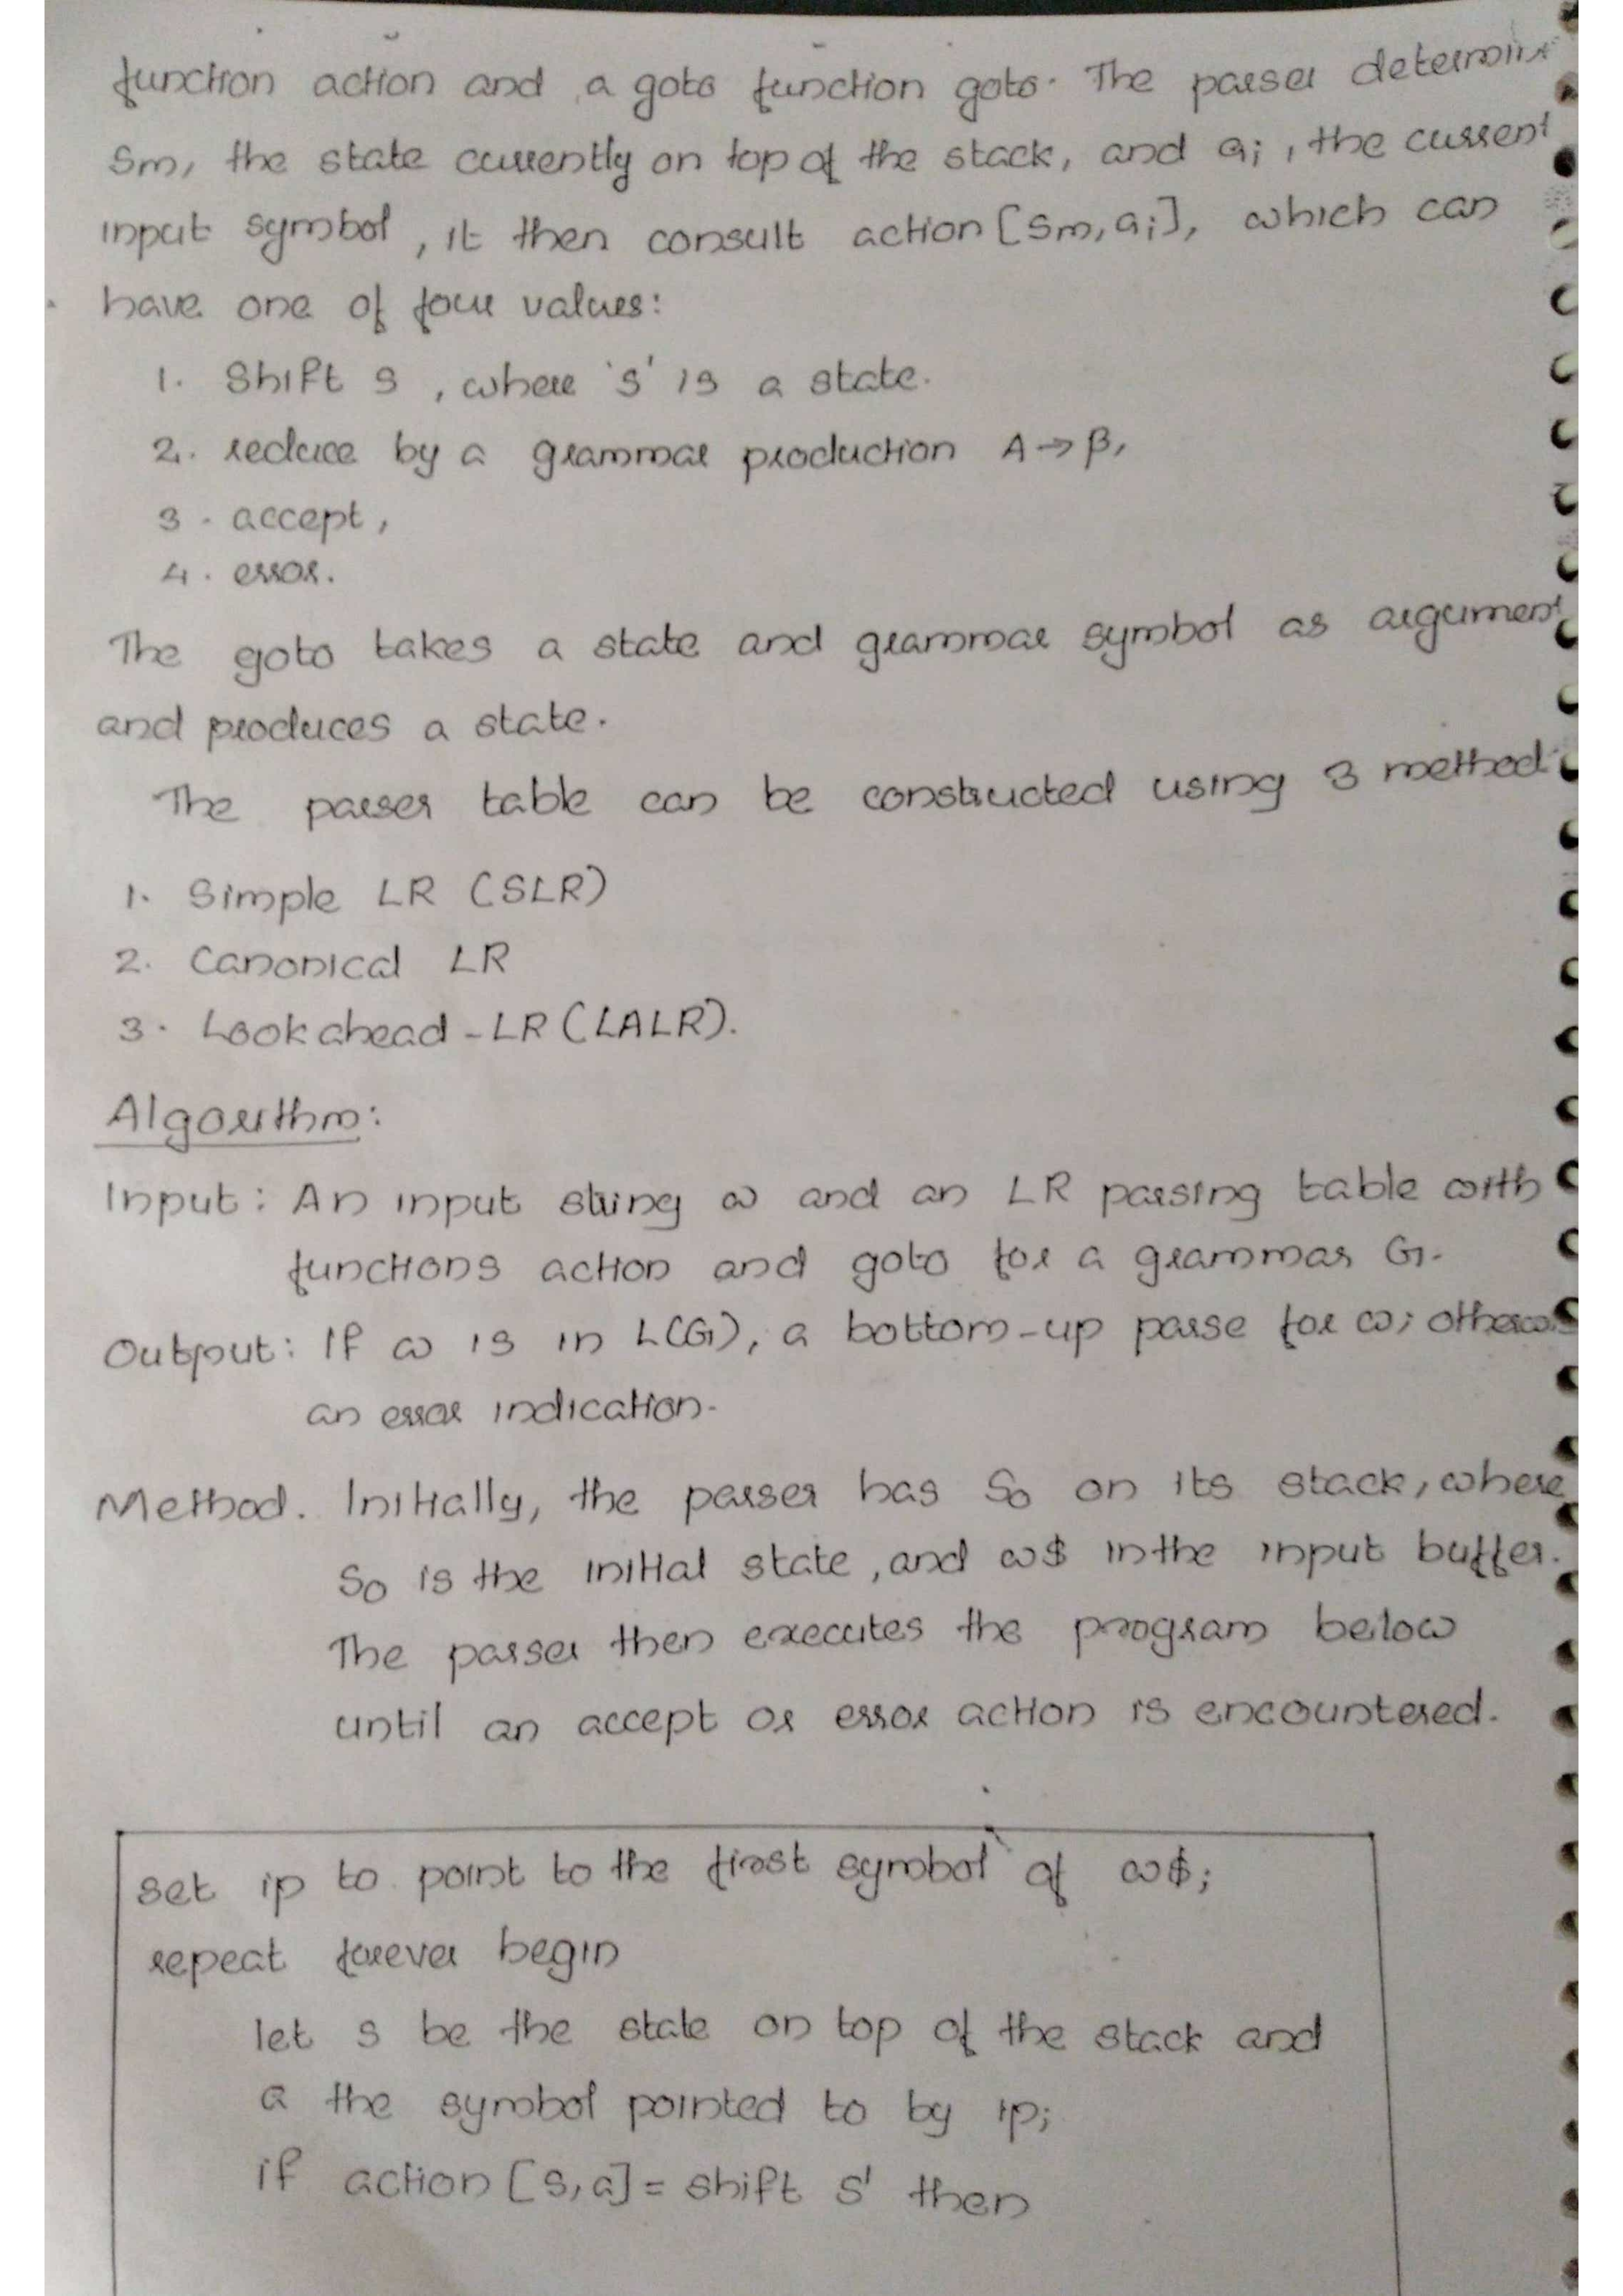 function action and a goto function goto. The parser determine
Sm, the state currently on top of the stack, and ai, the current
input symbol, it then consult action [Sm, ai], which can
have one of four values:
1. Shift S, where 's' is a state.
2. reduce by a grammar production A→β,
3. accept,
4. error.
The goto takes a state and grammar symbol as argument
and produces a state.
The parser table can be constructed using 3 method
1. Simple LR (SLR)
2. Canonical LR
3. Look ahead - LR (LALR).
Algorithm:
Input: An input string w and an LR parsing table with
functions action and goto for a grammar G.
Output: If w is in L(G), a bottom-up parse for w; otherwis
an error indication.
Method. Initially, the parser has S0 on its stack, where
S0 is the initial state, and w$ in the input buffer.
The parser then executes the program below
until an accept or error action is encountered.
set ip to point to the first symbol of w$;
repeat forever begin
let s be the state on top of the stack and
a the symbol pointed to by ip;
if action [s,a] = shift S' then